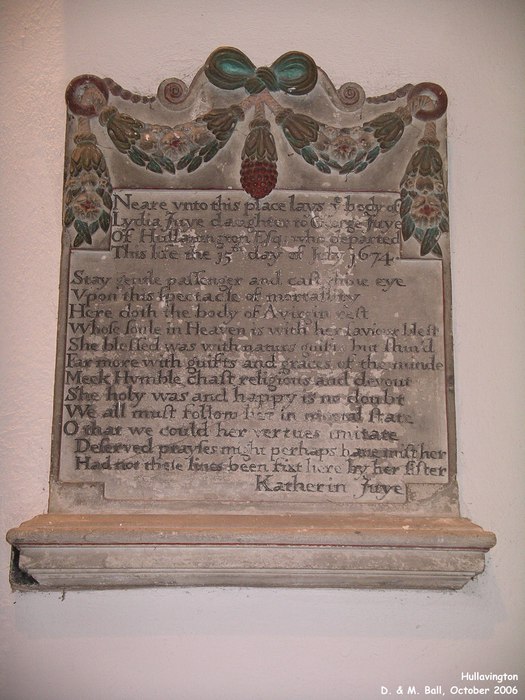 Neare vnto this place lays ye body of
Lydia Juye daughter to George Juye
Of Hullavington Esq. who departed
This life the 15th day of July 1674
Stay gentle passenger and cast thine eye
Vpon this spectacle of mortallity
Here doth the body of A virgin rest
Whose soule in Heaven is with her saviour blest
She blessed was with naturs guifts but shin'd
Far more with guifts and graces of the minde
Meek Hvmble chast religious and devout
She holy was and happy is no doubt
We all must follow her in mortal state
O that we could her vertues imitate
Deserved prayses might perhaps have mist her
Had not these lines been fixt here by her sister
Katherin Juye
Hullavington
D. & M. Ball, October 2006